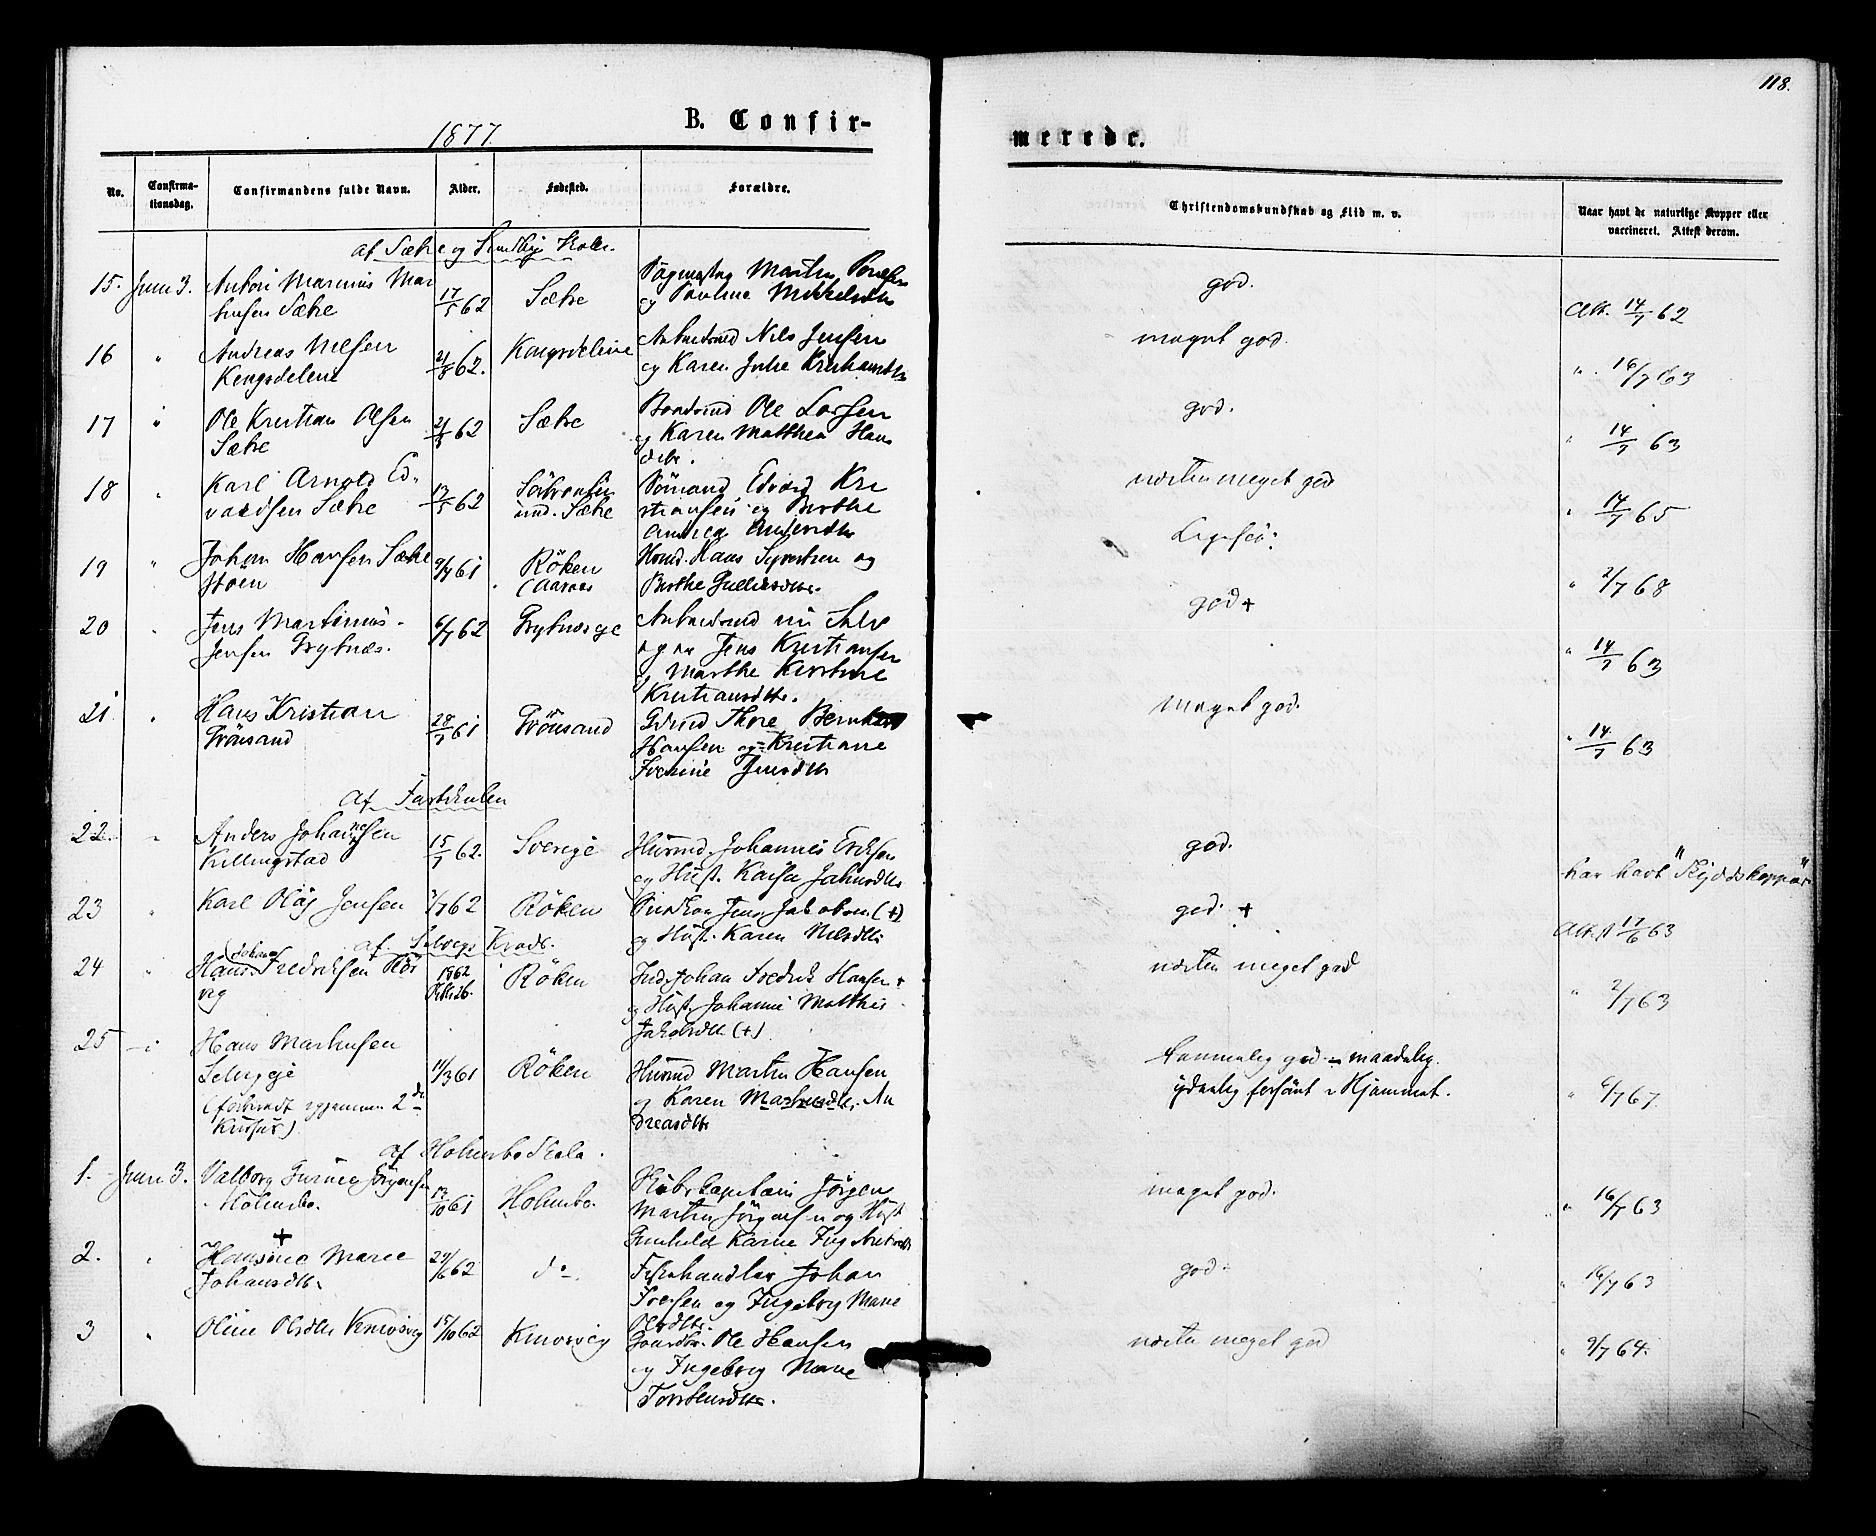 118.
1877.
B. Confir-
merede.
No.
Confirma-
tionsdag.
Confirmandens fulde Navn.
Alder.
Fødested.
Forældre.
Christendomskundskab og Flid m. v.
Naar havt de naturlige Kopper eller
vaccineret. Attest derom.
af Sætre og Skole.
15. Juni 3. Anton Marinius Mar
tinsen Sætre
17/5 62
Sætre
Martin
og Pauline Mikkelsdtr
god.
Att. 14/7 62
16 " Andreas Nilsen
Kongsdelene
21/8 62.
Kongsdelene
Arbeidsmd Nils Jensen
og Karen Julie Kristiansdtr
meget god.
" 16/7 63
17 " Ole Kristian Olsen
Sætre
21/8 62
Sætre
Ole Larsen
og Karen Matthea Hans
datr.
god.
" 14/7 63
18 " Karl Arnold Ed-
vardsen Sætre
17/5 62
und. Sætre
Sömand Edvard Kri
stiansen og Berthe
Andrea Andersdtr
næsten meget god
" 14/7 65
19 " Johan Hansen Sætre
støen
9/7 61
Röken
(Aaraas
Hans Syvertsen og
Berthe Gulliksdtr.
Ligesaa:
" 2/7 68
20 " Jens Martinius
Jensen Grytnæs.
6/7 62
Grytnæs eje
Arbeidsmd
Jens Kristiansen
og Marthe Kirstine
Kristiansdtr.
god +
" 14/7 63
21 " Hans Kristian
Grönsand
28/7 61
Grönsand
Thore Bernhard
Hansen og Kristiane
Jensdtr
Meget god.
" 14/7 63
af Fastskolen
22. " Anders Johannesen
Killingstad
15/7 62.
Sverige
Husmd. Johannes Eriksen
og Hust. Kaisa Jahnsdtr
god.
har havt "Skyddskoppor"
23 " Karl Olaf Jensen
7/7 62
Röken
Jens Jakobsen (+)
og Hust. Karen Nilsdtr
god. +
Att. 17/6 63
af Selvigs Kreds.
24 " Hans Johan Fredriksen
vig
1862
Oktr 26.
Röken
Johan Fredrik Hansen +
og Hust. Johanne Matthea
Jakobsdtr. (+)
næsten meget god
" 2/7 63
25 " Hans Martinsen
Selvigeje
(forberedt igjennem 2de
Kurser)
11/3 61
Röken
Husmd Martin Hansen
og Karen Martinsdtr. An
dreasdtr
temmelig god - maadelig.
ydmelig forsömt i Hjemmet.
" 6/7 67.
af Holmsbo Skole.
1. Juni 3. Valborg Jörgensen
Holmsbo.
17/10 61
Holmsbo.
Skibskaptain Jörgen
Martin Jörgensen og Hust
Gunhild Karine
meget god.
" 16/7 63
2. " + Hansine Marie
Johansdtr.
29/6 62
do
Fiskehandler Johan
Iversen og Ingeborg Marie
Olsdtr.
god.
" 16/7 63
3 " Oline Olsdtr Knivsvig
15/10 62
Knivsvig
Ole Hansen
og Ingeborg Marie
Torstensdtr.
næsten meget god
" 9/7 64.